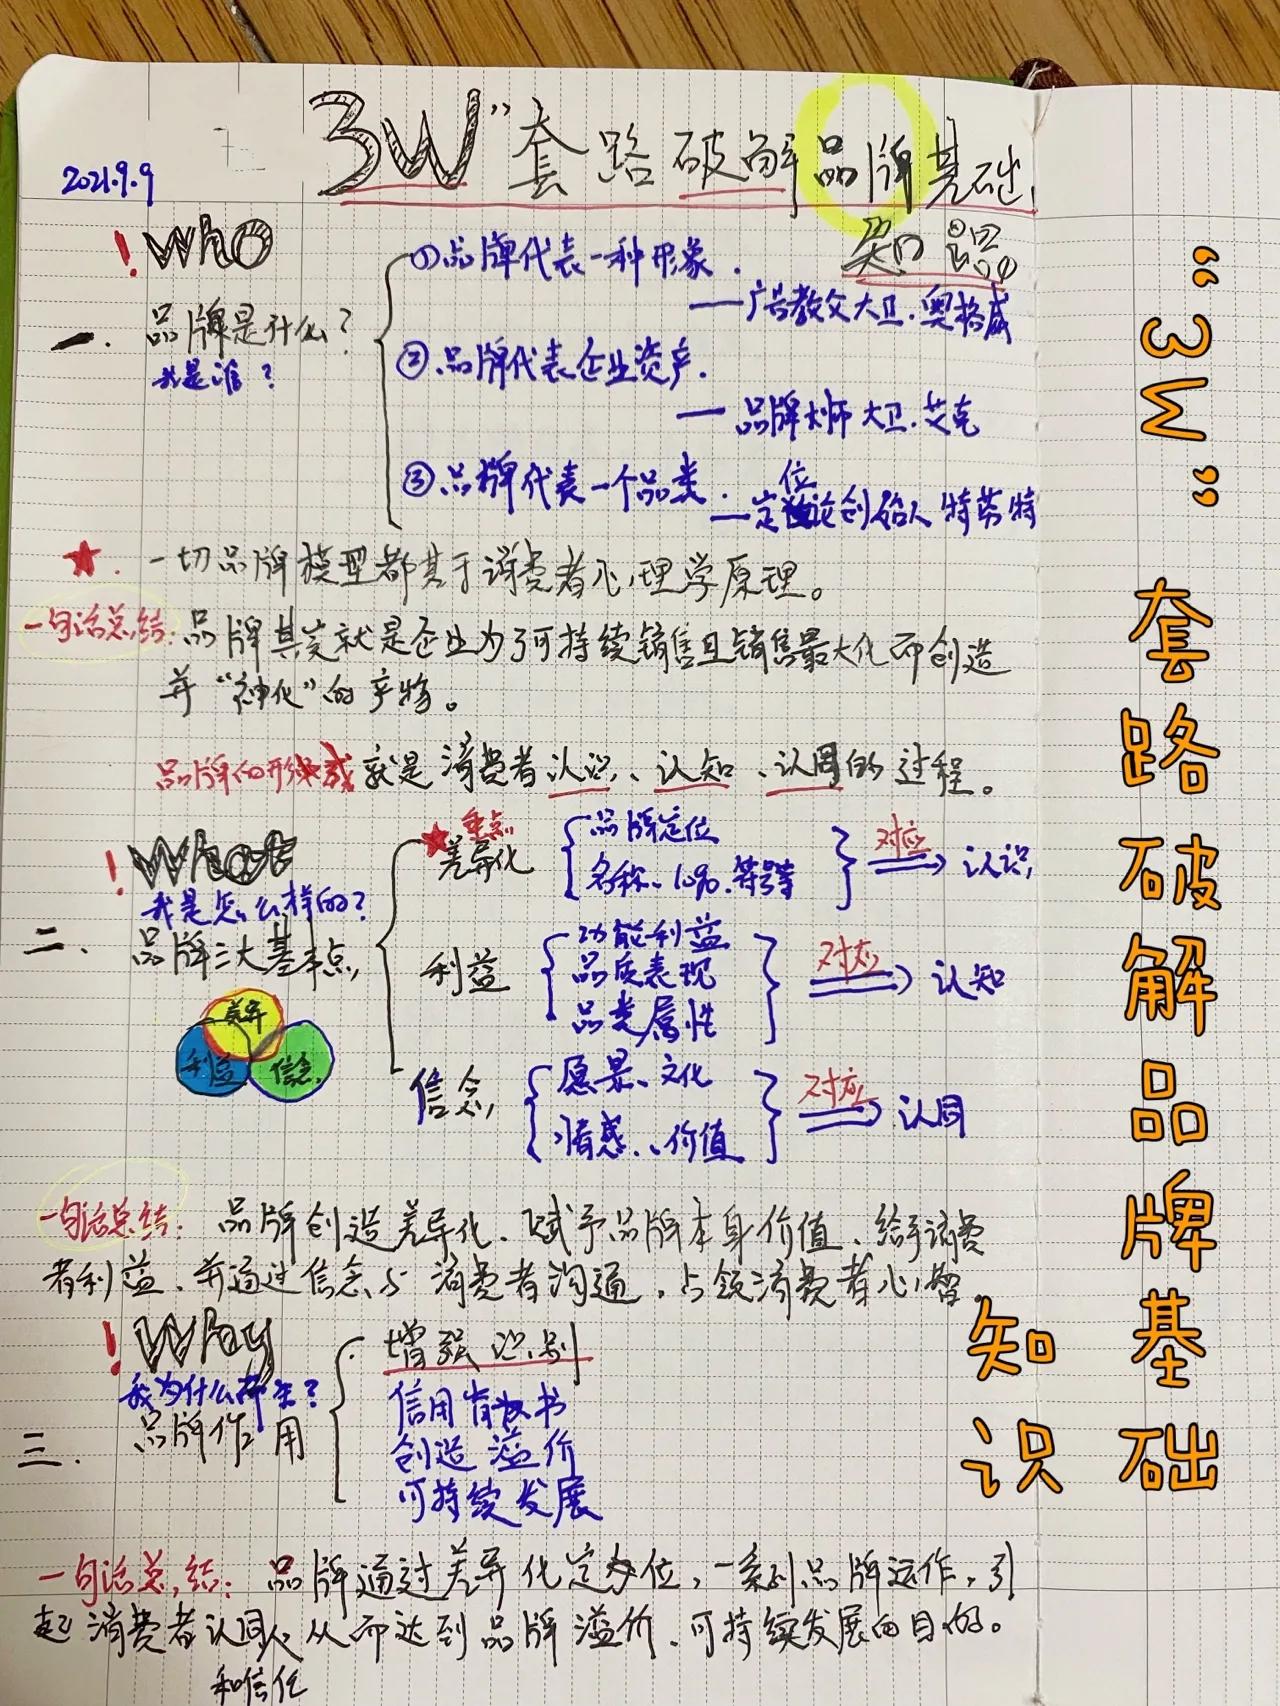 "3W"套路破解品牌基础
知识
2021.9.9
! Who
一. 品牌是什么?
我是谁?
①品牌代表一种形象.
——广告教父大卫.奥格威
②.品牌代表企业资产.
—— 品牌大师 大卫.艾克
③.品牌代表一个品类.
——定位论创始人 特劳特
★. 一切品牌模型都基于消费者心理学原理。
一句话总结:品牌其实就是企业为了可持续销售且销售最大化而创造
并“神化”的产物。
品牌的形成就是消费者认识、认知、认同的过程。
! What
我是怎么样的?
二、品牌三大基本点
差异
利益
信念
★重点
差异化
品牌定位
名称、logo.符号等
对应
认识
利益
功能利益
品质表现
品类属性
对应
认知
信念
愿景、文化
情感、价值
对应
认同
一句话总结: 品牌创造差异化、赋予品牌本身价值、给予消费
者利益、并通过信念与消费者沟通,占领消费者心智。
! Why
我为什么而来?
三. 品牌作用
增强识别
信用背书
创造溢价
可持续发展
一句话总结: 品牌通过差异化定位,一系列品牌运作,引
起消费者认同从而达到品牌溢价、可持续发展的目的。
和信任
“3W”套路破解品牌基础
知识